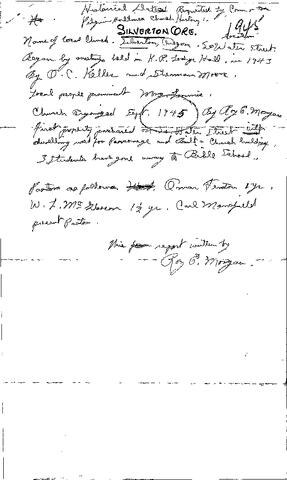 Historical Data Requested by Com. on
Pilgrim Holiness Church History.
SILVERTON ORE.
1945
Name of Local Church. Silverton, Oregon - So. Water Street.
Began by meetings held in K.P. Lodge Hall. in 1943
By O. C. Keller and Sherman Moore.
Local people prominent
Church Organized Sept. 1945 By Roy P. Morgan
First property purchased Water Street with
dwelling used for Parsonage and Built a Church building.
3 Students have gone away to Bible School.
Pastors as follows Omar Fenton 1 yr.
W. L. 1½ yr. Carl Mansfield
present Pastor.
This report written by
Roy P. Morgan.